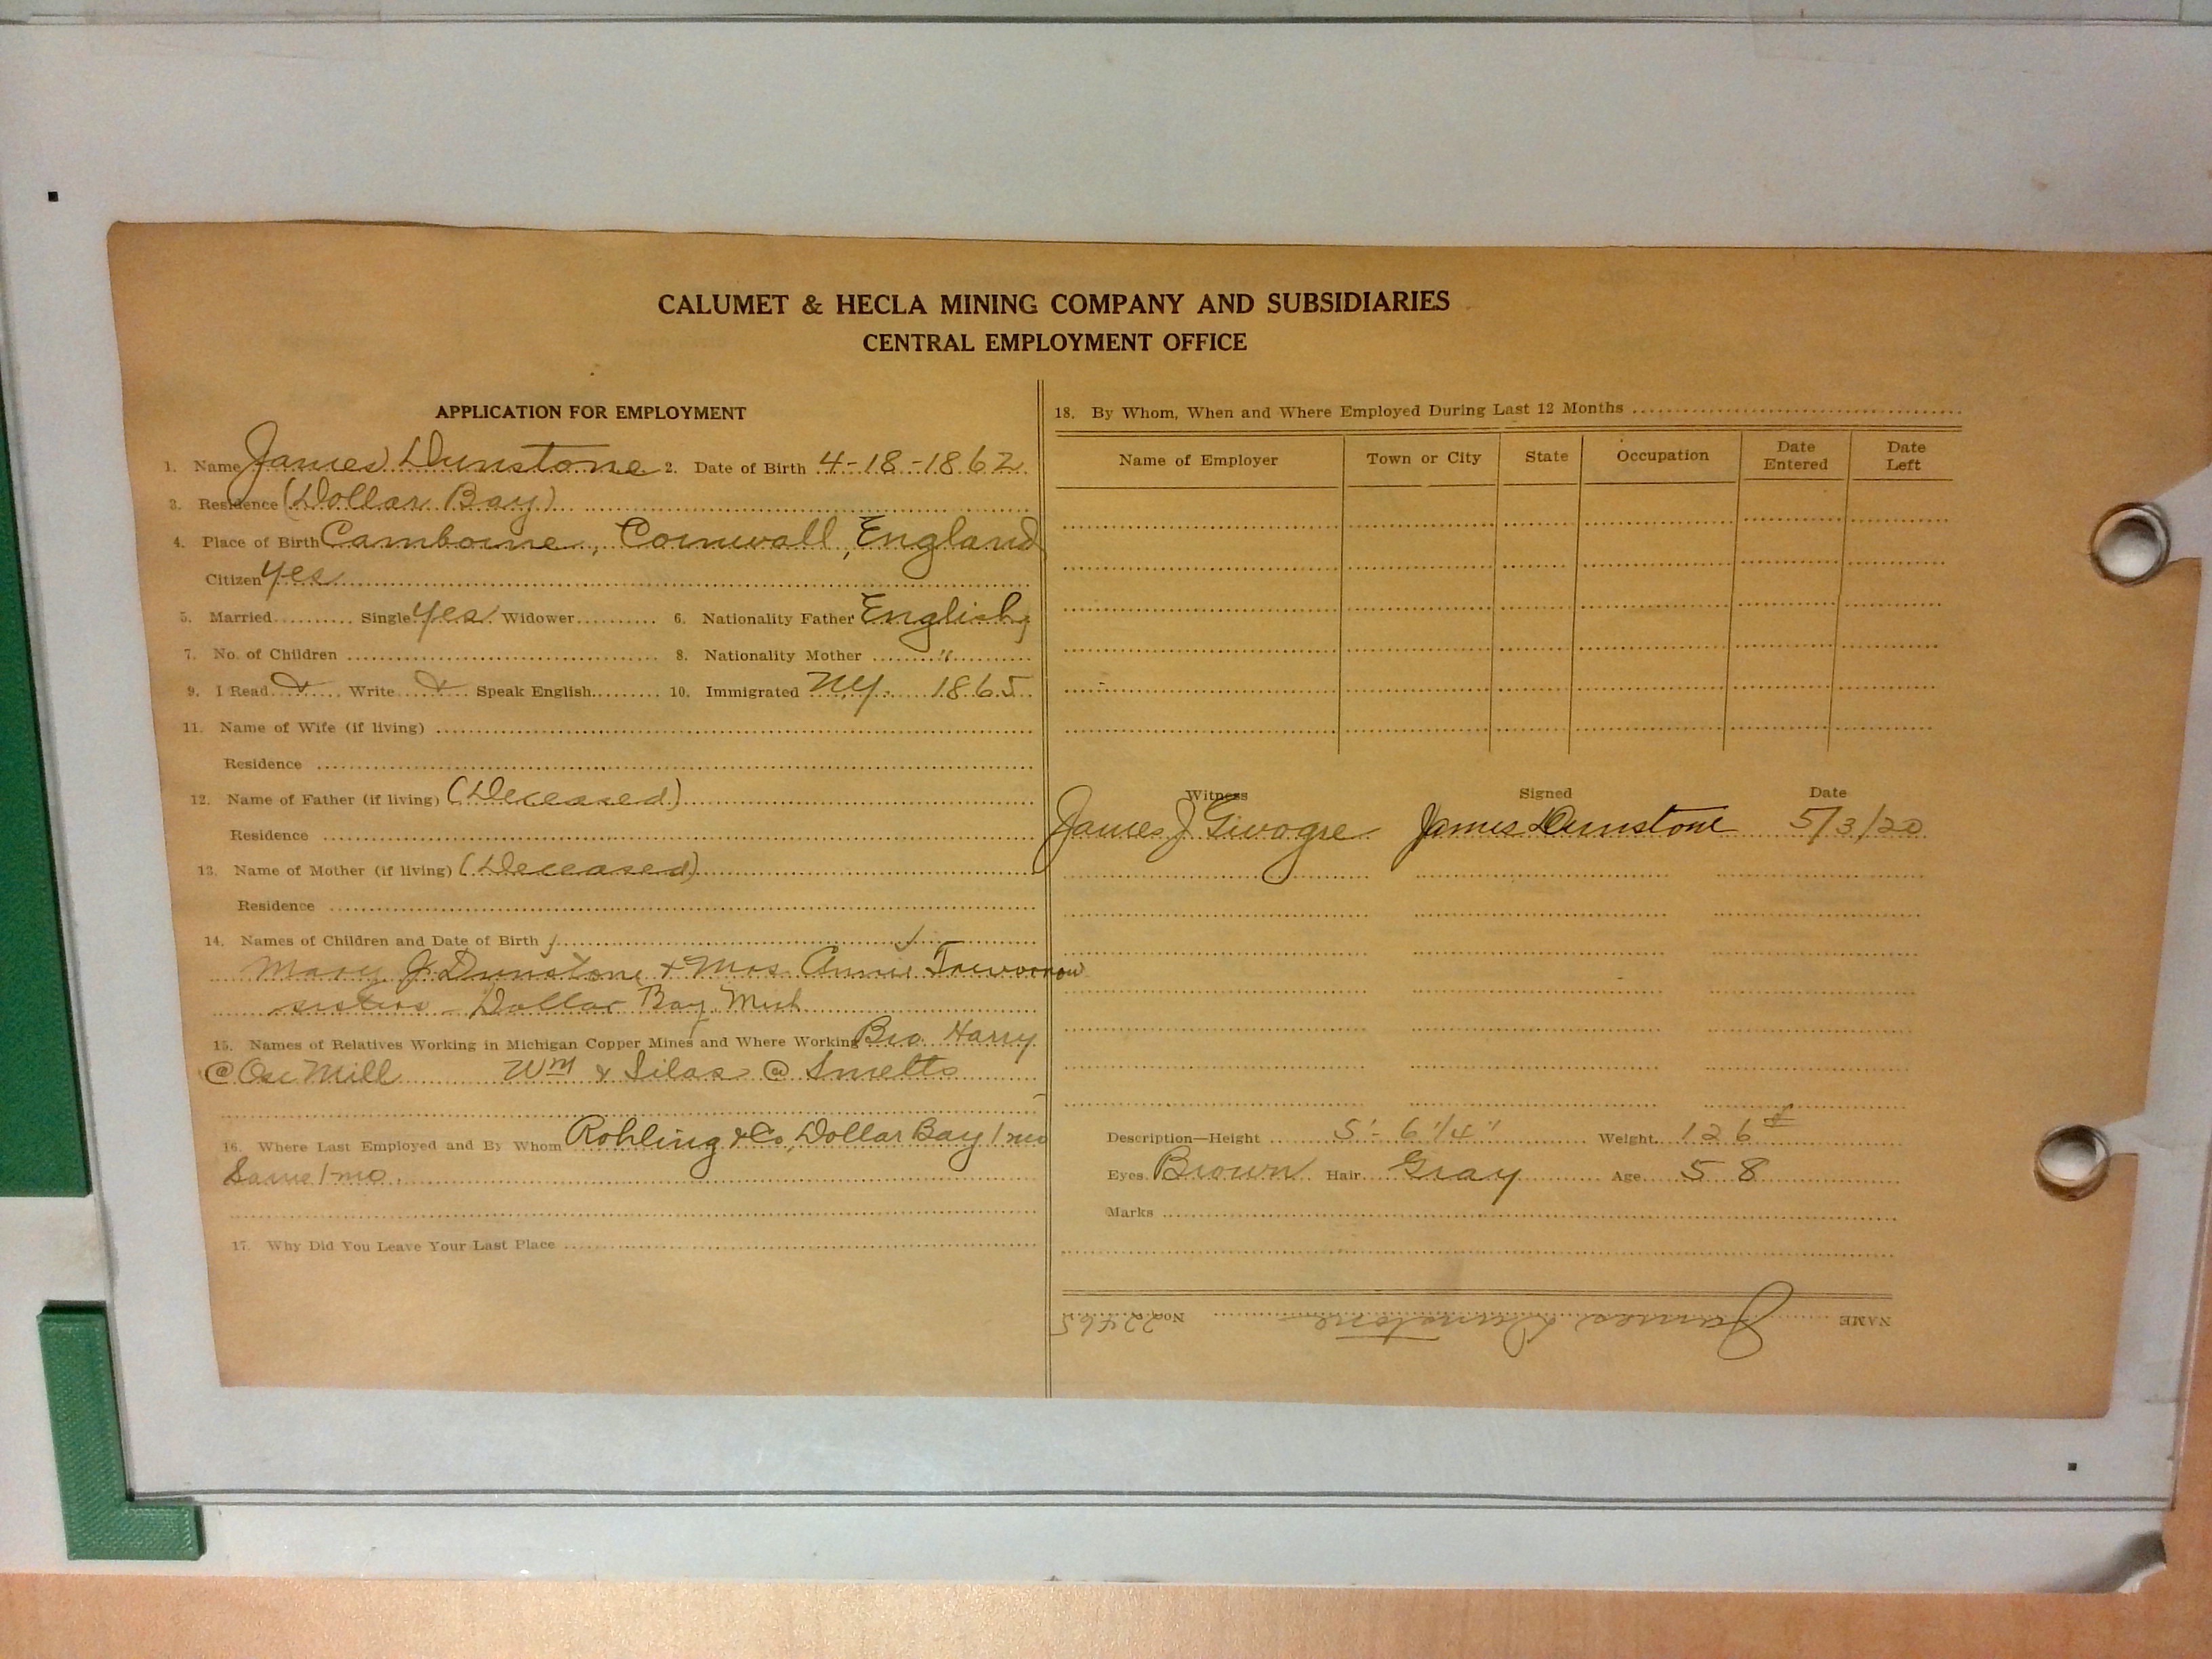 CALUMET & HECLA MINING COMPANY AND SUBSIDIARIES
CENTRAL EMPLOYMENT OFFICE
APPLICATION FOR EMPLOYMENT
1. Name James Dunstone 2. Date of Birth 4-18-1862
3. Residence (Dollar Bay)
4. Place of Birth Camborne, Cornwall, England
Citizen Yes
5. Married Single Yes Widower 6. Nationality Father English
7. No. of Children 8. Nationality Mother "
9. I Read Write Speak English 10. Immigrated NY. 1865
11. Name of Wife (if living)
Residence
12. Name of Father (if living) (Deceased)
Residence
13. Name of Mother (if living) (Deceased)
Residence
14. Names of Children and Date of Birth
Mary J. Dunstone & Mrs Annie Trevorrow
sisters - Dollar Bay, Mich
15. Names of Relatives Working in Michigan Copper Mines and Where Working Bro. Harry
@ Mill Wm & Silas @ Smelts
16. Where Last Employed and By Whom Rohling & Co, Dollar Bay 1 mo
Same 1 mo.
17. Why Did You Leave Your Last Place
18. By Whom, When and Where Employed During Last 12 Months
Name of Employer Town or City State Occupation Date Entered Date Left
Witness Signed Date
James J. James Dunstone 5/3/20
Description—Height 5'- 6 1/4" Weight 126
Eyes Brown Hair Gray Age 58
Marks
NAME James Dunstone No. 22465